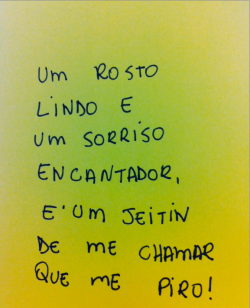 Um ROSTO
LINDO E
Um SORRISO
ENCANTADOR,
E' UM JEITIN
DE ME CHAMAR
QUE ME PIRO!